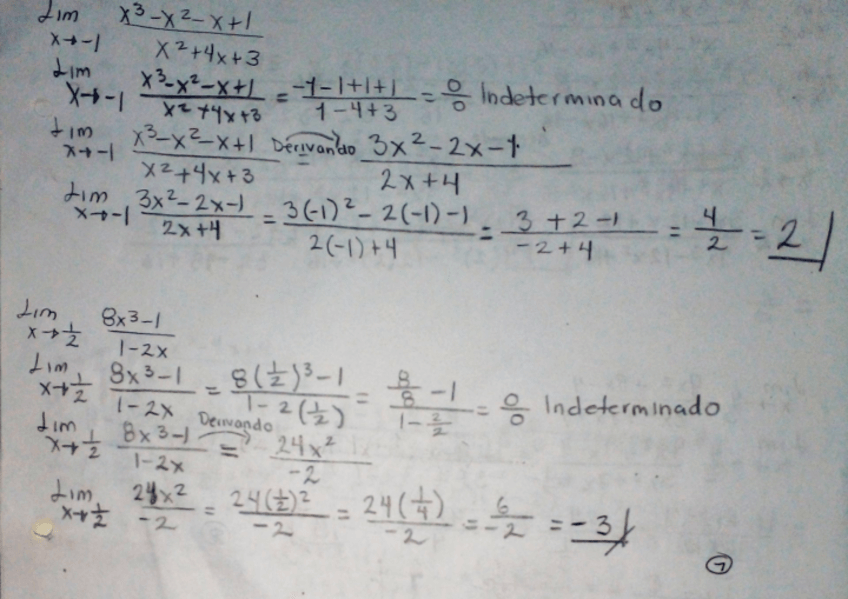 Lim x→-1 x³-x²-x+1 / x²+4x+3
Lim x→-1 x³-x²-x+1 / x²+4x+3 = -1-1+1+1 / 1-4+3 = 0/0 Indeterminado
Lim x→-1 x³-x²-x+1 / x²+4x+3 Derivando = 3x²-2x-1 / 2x+4
Lim x→-1 3x²-2x-1 / 2x+4 = 3(-1)²-2(-1)-1 / 2(-1)+4 = 3+2-1 / -2+4 = 4/2 = 2
Lim x→1/2 8x³-1 / 1-2x
Lim x→1/2 8x³-1 / 1-2x = 8(1/2)³-1 / 1-2(1/2) = 8/8 -1 / 1-2/2 = 0/0 Indeterminado
Lim x→1/2 8x³-1 / 1-2x Derivando = 24x² / -2
Lim x→1/2 24x² / -2 = 24(1/2)² / -2 = 24(1/4) / -2 = 6/-2 = -3
7